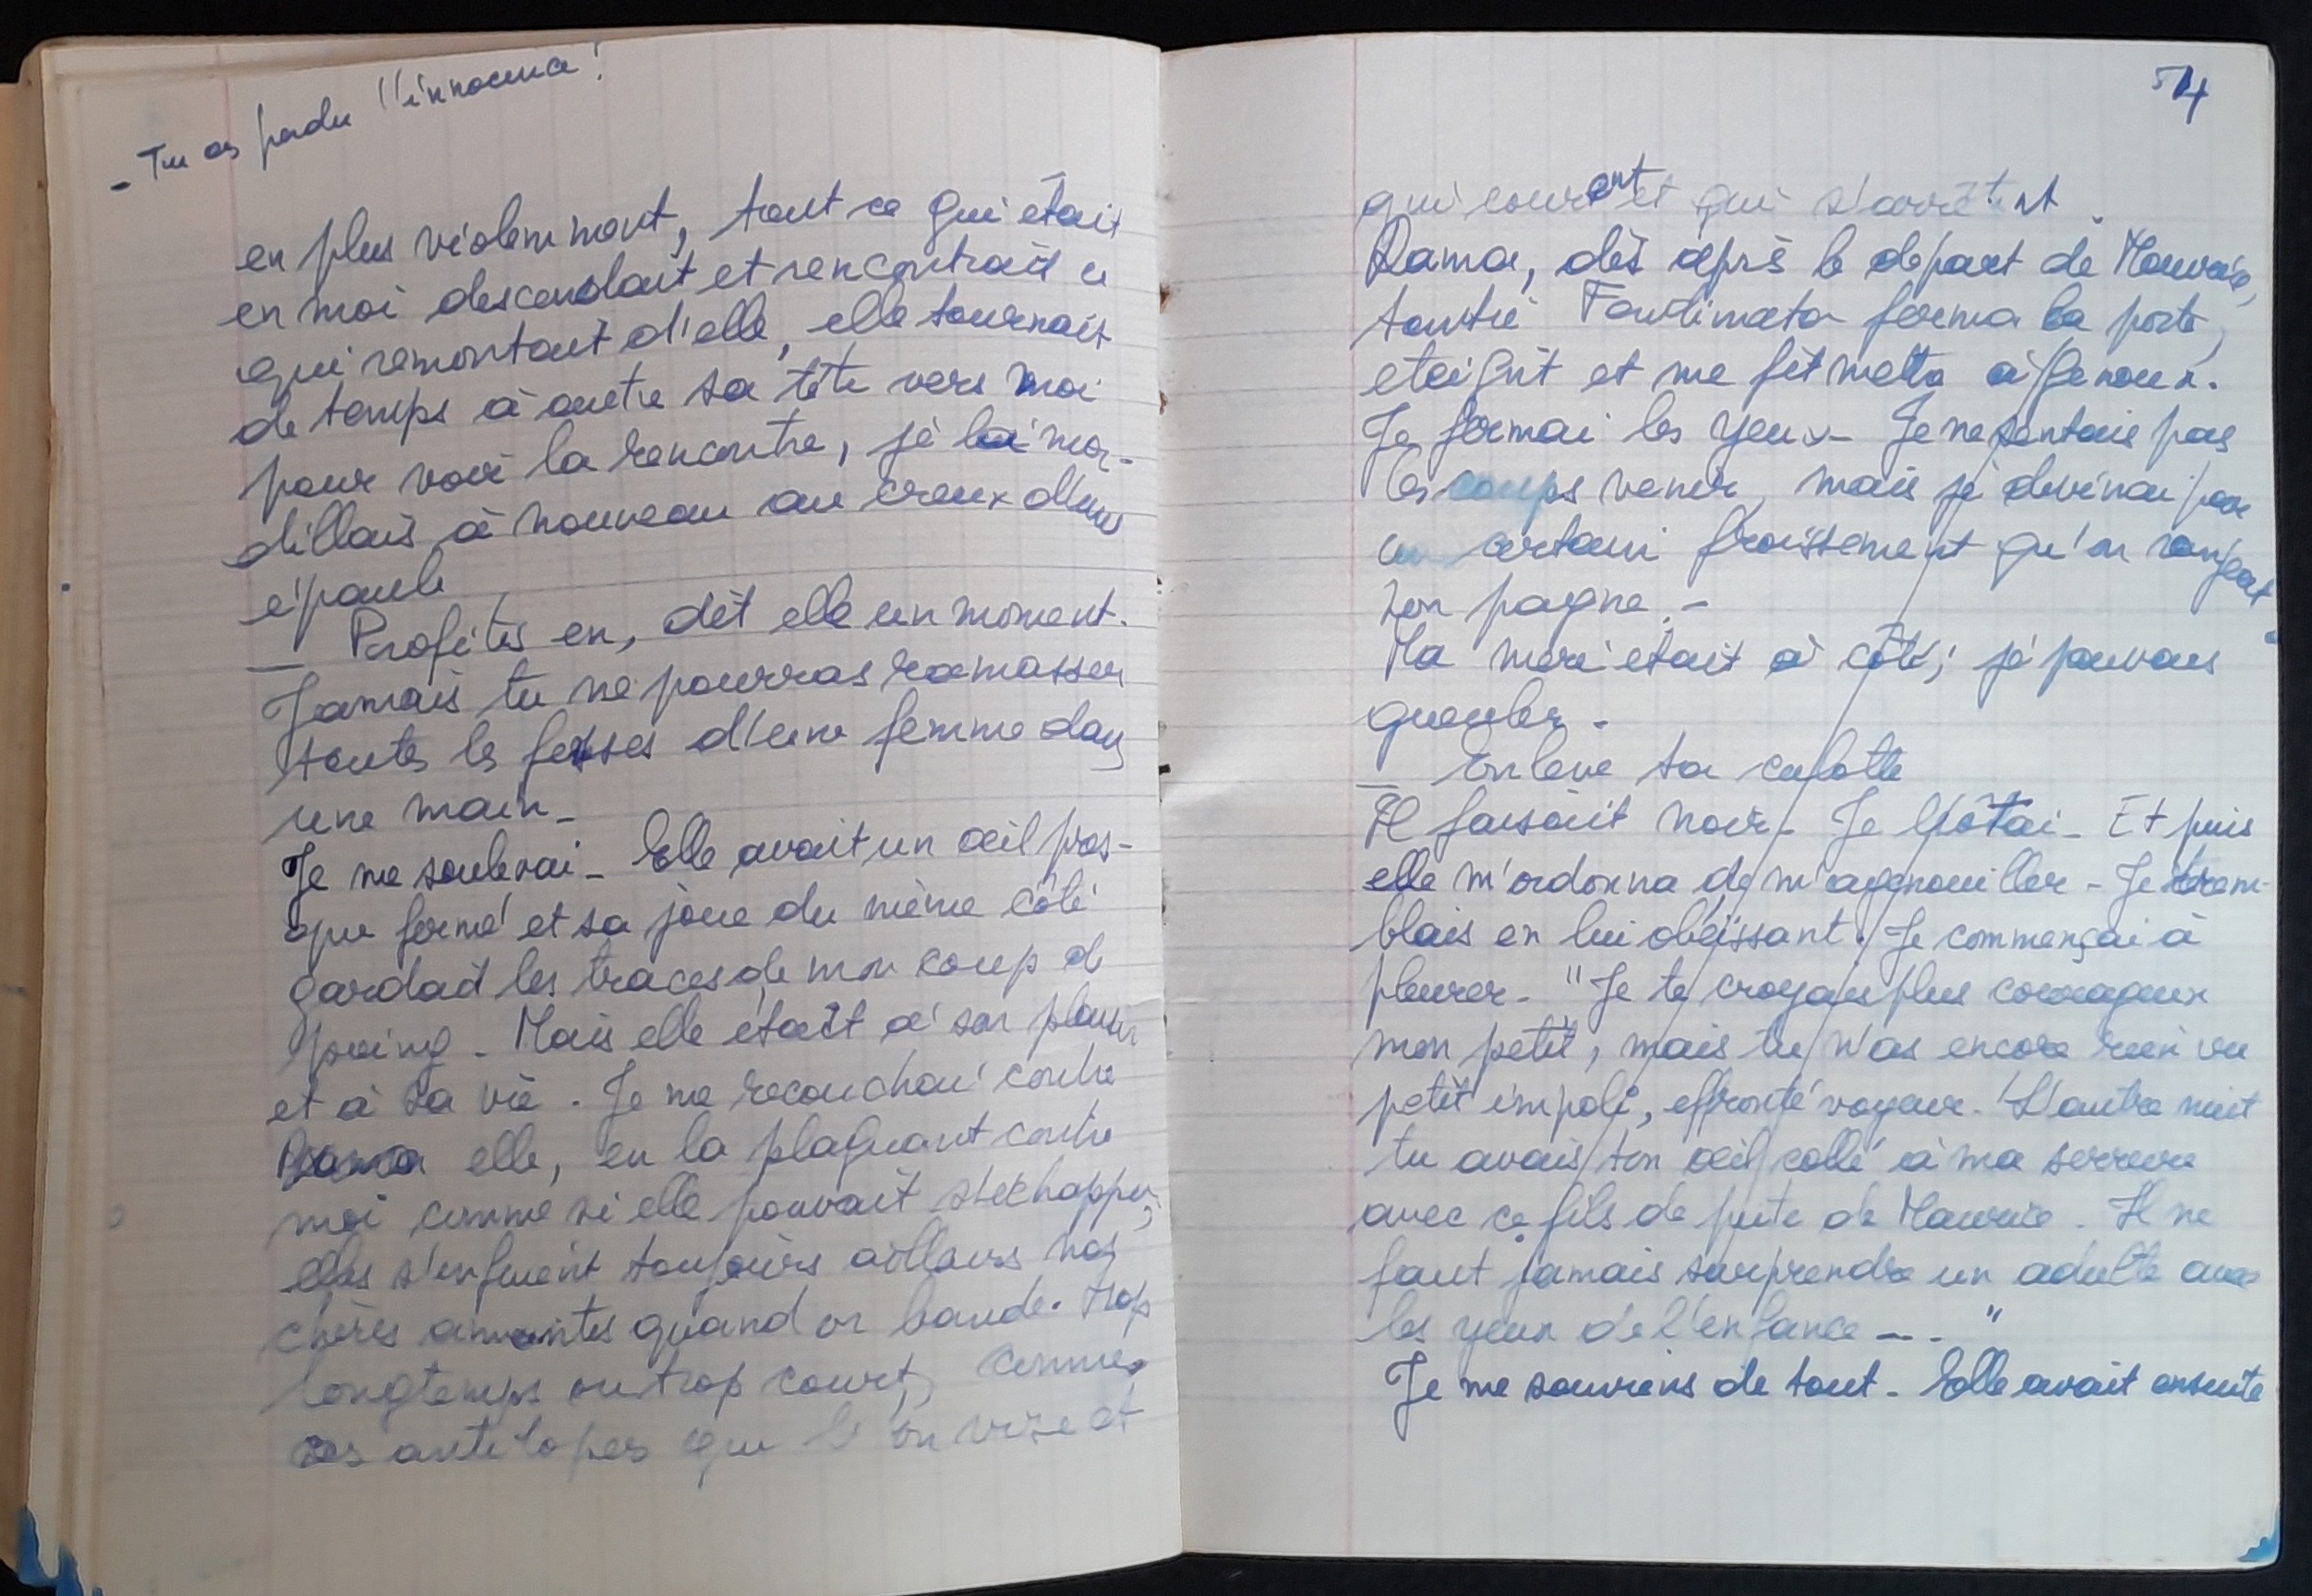 - Tu as perdu l'innocence !
en plus violemment, tout ce qui était
en moi descendait et rencontrait ce
qui remontait d'elle, elle tournait
de temps à autre sa tête vers moi
pour voir la rencontre, je la mor-
dillais à nouveau au creux d'une
épaule
— Profites en, dit elle un moment.
Jamais tu ne pourras ramasser
toutes les fesses d'une femme dans
une main_
Je me soulevai_ Elle avait un œil pres-
que fermé et sa joue du même côté
gardait les traces de mon coup de
poing_ Mais elle était à son plaisir
et à sa vie. Je me recouchai contre
elle, en la plaquant contre
moi comme si elle pouvait s'échapper,
elles s'enfuient toujours ailleurs nos
chères amantes quand on bande. Trop
longtemps ou trop court, comme
ces antilopes que l'on vise et
54
qui courent et qui s'arrêtent.
Rama, dès après le départ de Maurice,
tantie Fantimata ferma la porte,
éteignit et me fit mettre à genoux.
Je fermai les yeux_ Je ne sentais pas
les coups venir, mais je devinai par
un certain froissement qu'on rangeait
son pagne_
Ma mère était à côté; je pouvais
gueuler_
— Enlève ta culotte
Il faisait noir_ Je l'ôtai_ Et puis
elle m'ordonna de m'agenouiller_ Je trem-
blais en lui obéissant. Je commençai à
pleurer_ "Je te croyais plus courageux
mon petit, mais tu n'as encore rien vu
petit impoli, effronté voyeur. L'autre nuit
tu avais ton œil collé à ma serrure
avec ce fils de pute de Maurice. Il ne
faut jamais surprendre un adulte avec
les yeux de l'enfance_ . . "
Je me souviens de tout_ Elle avait ensuite